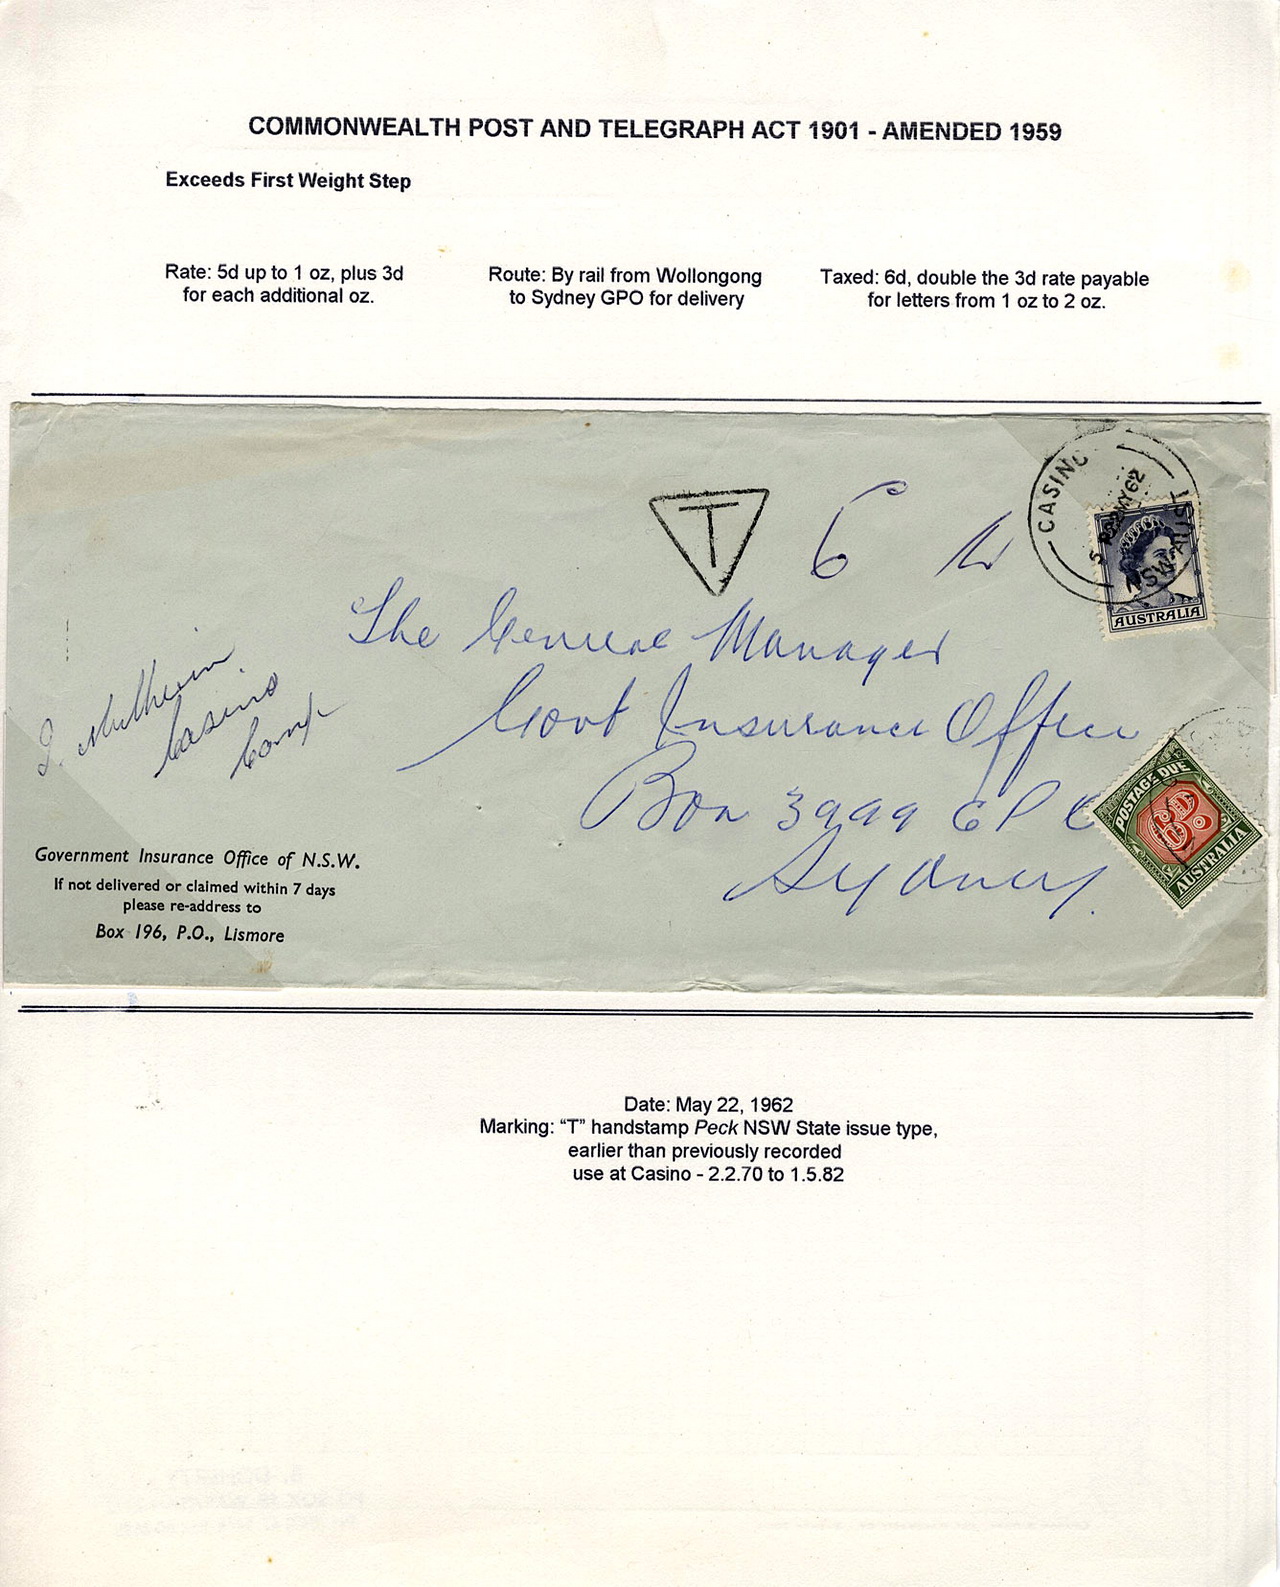 COMMONWEALTH POST AND TELEGRAPH ACT 1901 - AMENDED 1959
Exceeds First Weight Step
Rate: 5d up to 1 oz, plus 3d
for each additional oz.
Route: By rail from Wollongong
to Sydney GPO for delivery
Taxed: 6d, double the 3d rate payable
for letters from 1 oz to 2 oz.
CASINO
22MY62
NSW-AUST
T
6
AUSTRALIA
The General Manager
Govt Insurance Office
Box 3999 GPO
Sydney.
Casino
POSTAGE DUE
6D.
AUSTRALIA
Government Insurance Office of N.S.W.
If not delivered or claimed within 7 days
please re-address to
Box 196, P.O., Lismore
Date: May 22, 1962
Marking: “T” handstamp Peck NSW State issue type,
earlier than previously recorded
use at Casino - 2.2.70 to 1.5.82